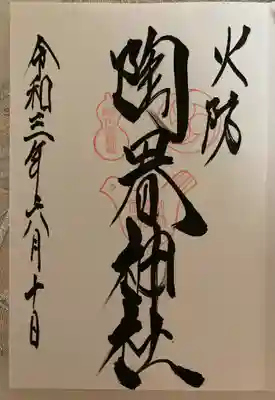 火防
陶器神社
令和三年六月十日